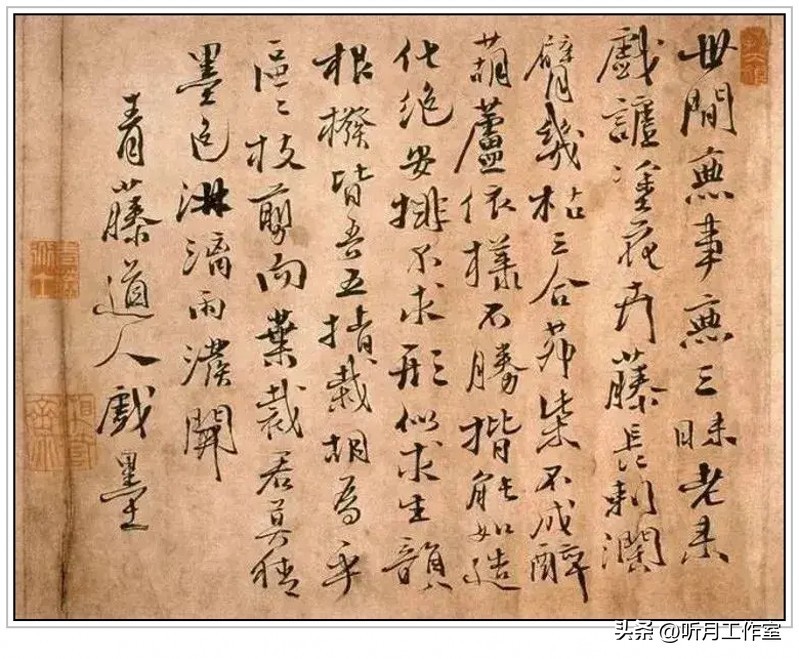 世間無事無三昧老來
戲謔塗花卉藤長刺濶
臂幾枯三合茅柴不成醉
葫蘆依樣不勝揩能如造
化絶安排不求形似求生韻
根撥皆吾五指栽胡爲乎
區〻枝剪而葉裁君莫猜
墨色淋漓雨潑開
青藤道人戲墨
头条 @听月工作室